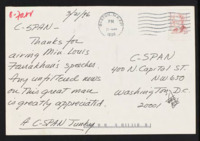 3/10/96
C-SPAN -
Thanks for
airing Min. Louis
Farrakhan's speeches
Any unfiltered news
on this great man
is greatly appreciated.
A C-SPAN Junkey
PM
C-SPAN
400 N. Capitol St.
NW 650
Washington, DC
20001